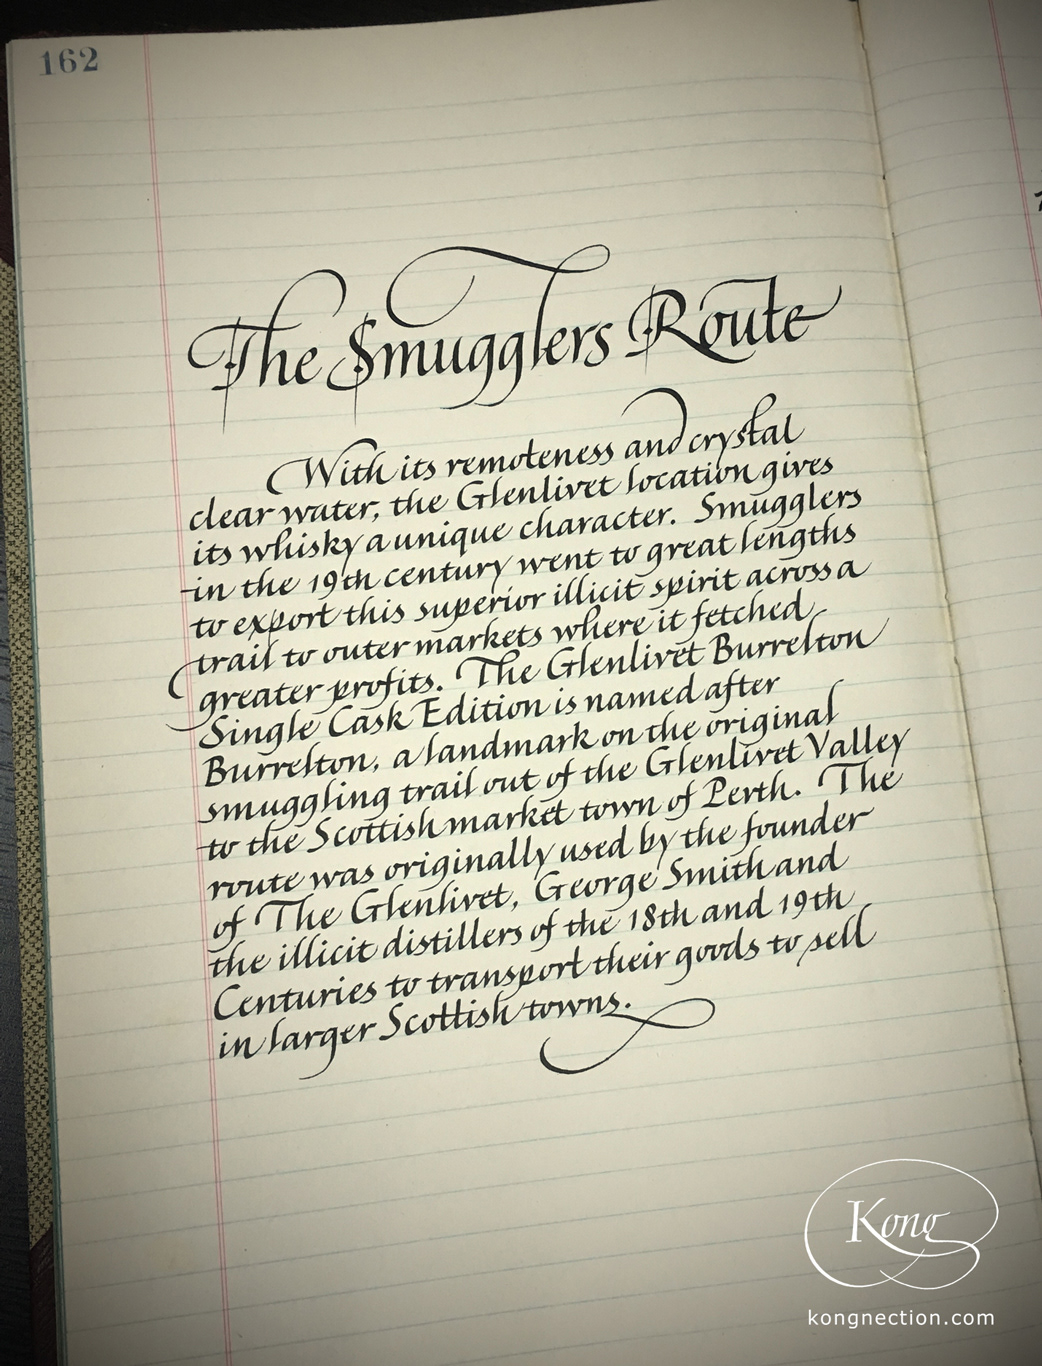 162
The Smugglers Route
With its remoteness and crystal
clear water, the Glenlivet location gives
its whisky a unique character. Smugglers
in the 19th century went to great lengths
to export this superior illicit spirit across a
trail to outer markets where it fetched
greater profits. The Glenlivet Burrelton
Single Cask Edition is named after
Burrelton, a landmark on the original
smuggling trail out of the Glenlivet Valley
to the Scottish market town of Perth. The
route was originally used by the founder
of The Glenlivet, George Smith and
the illicit distillers of the 18th and 19th
Centuries to transport their goods to sell
in larger Scottish towns.
Kong
kongnection.com